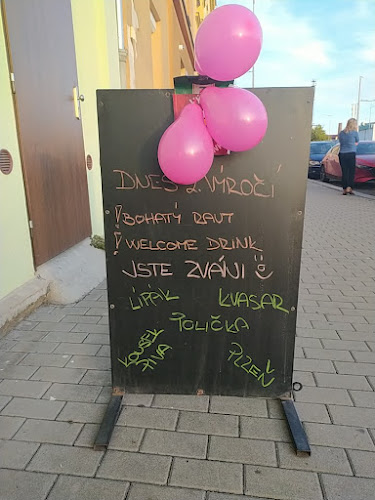 DNES 2. VÝROČÍ
! BOHATÝ RAUT
! WELCOME DRINK
JSTE ZVÁNI ☺
LIPÁK KVASAR
POLIČKA
KOUSEK PIVA
PLZEŇ